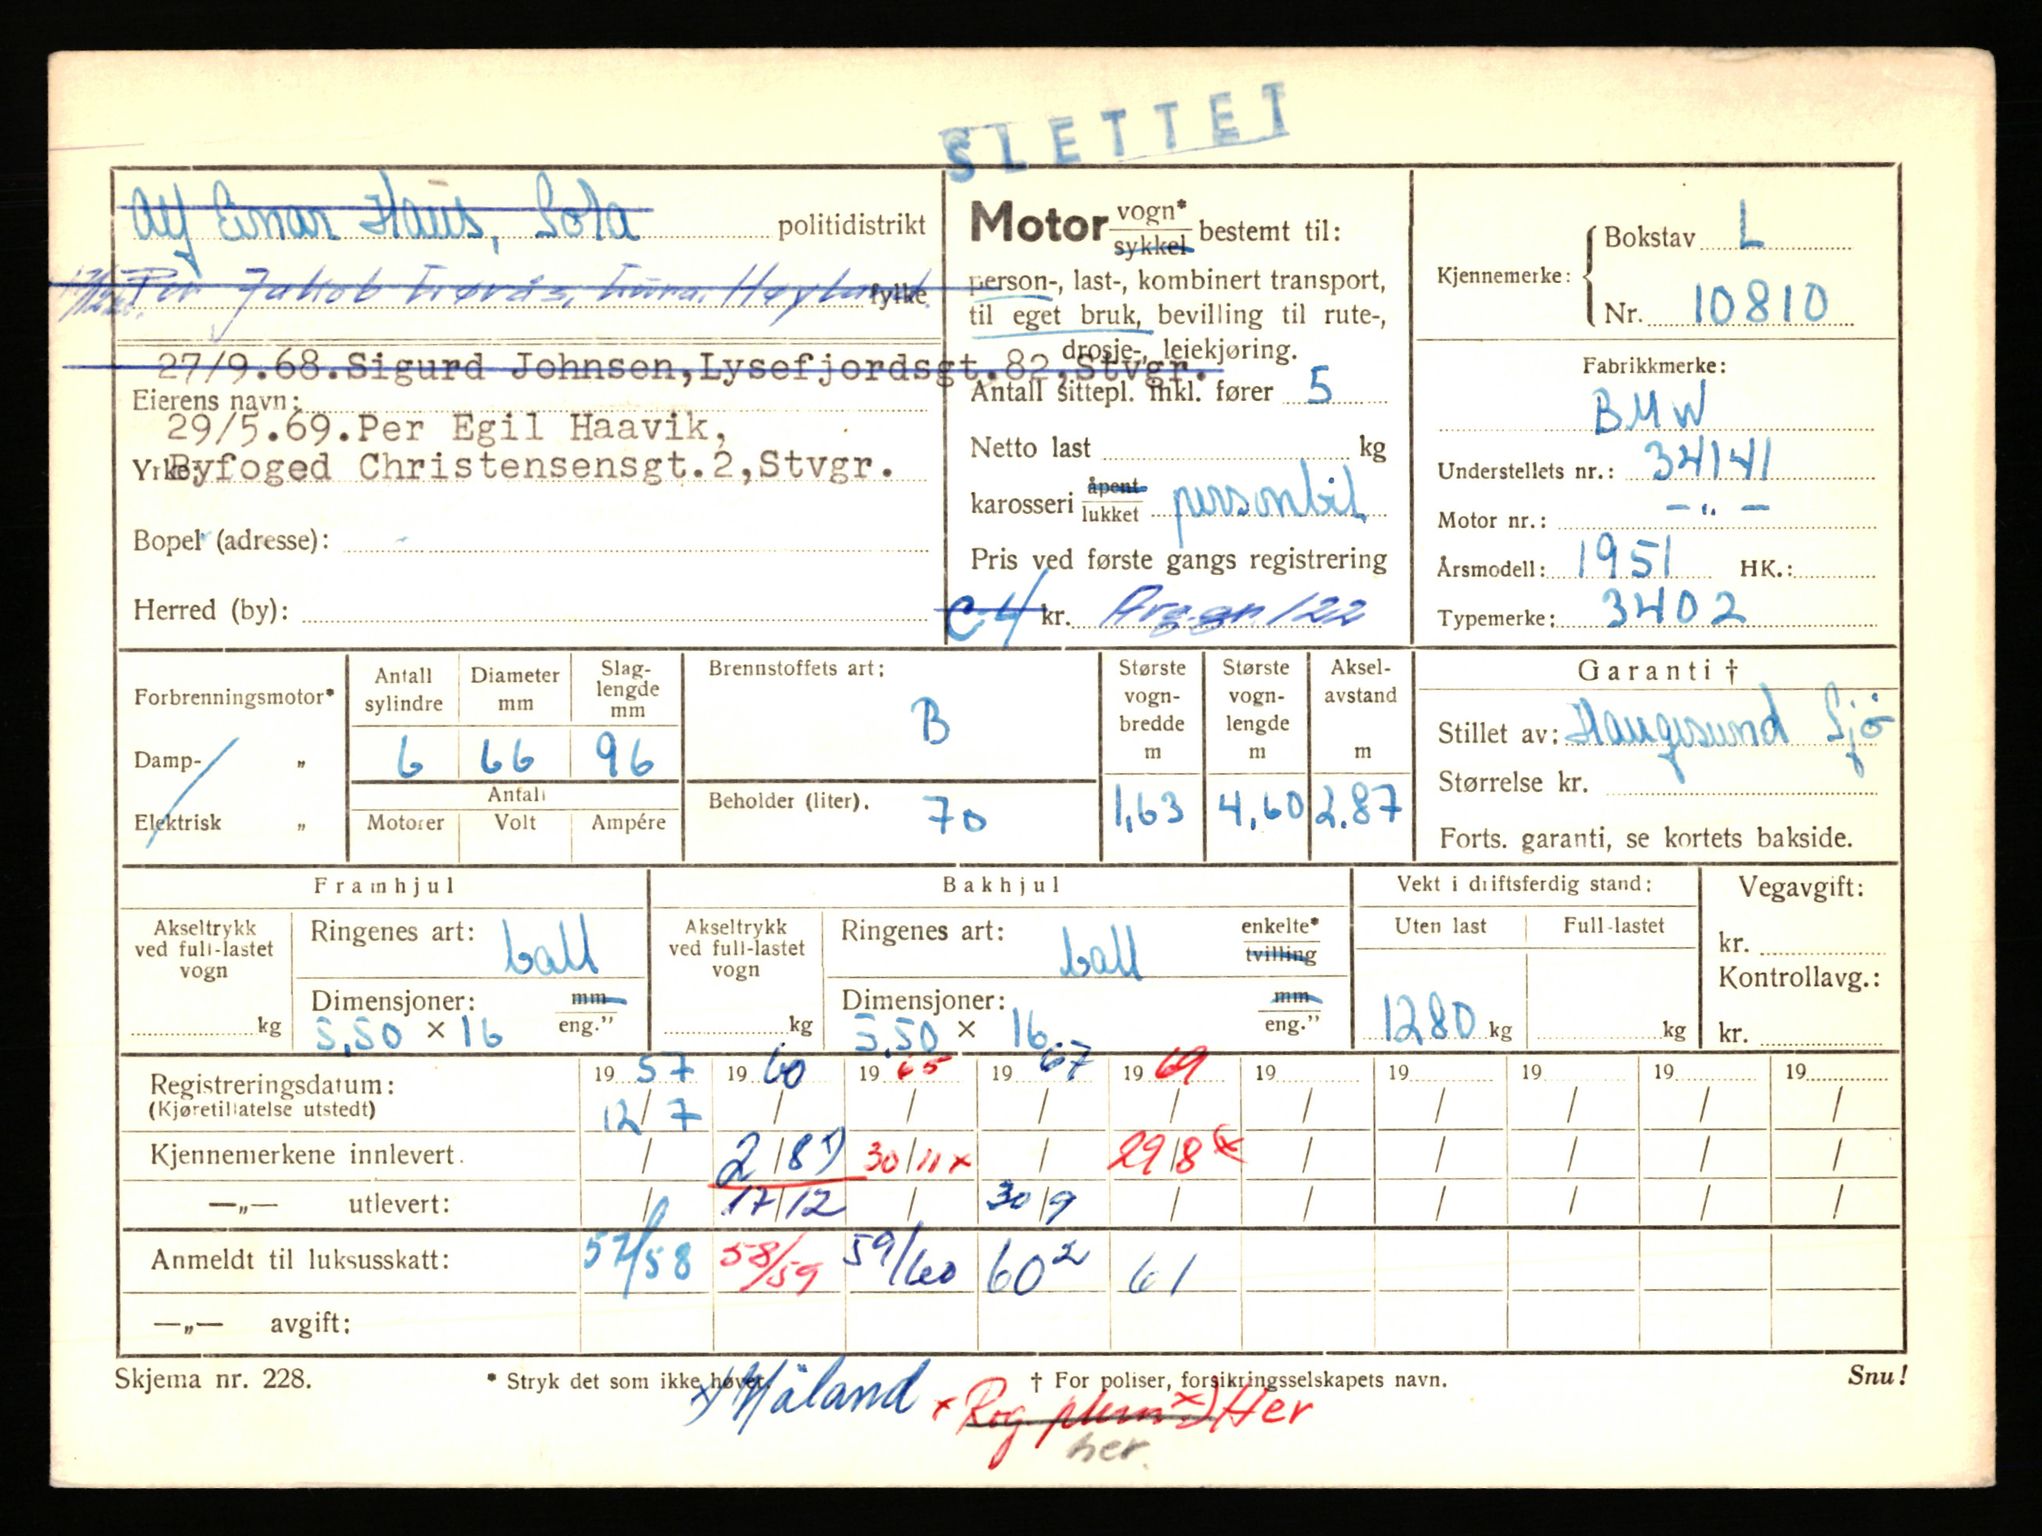 SLETTET
Alf Einar Haus, Sola politidistrikt
Per Jakob fylke
27/9.68.Sigurd Johnsen,Lysefjordsgt.82,Stvgr.
Eierens navn:
29/5.69.Per Egil Haavik,
Yrke: Byfoged Christensensgt.2,Stvgr.
Bopel (adresse):
Herred (by):
Motor vogn* / sykkel bestemt til:
person-, last-, kombinert transport,
til eget bruk, bevilling til rute-,
drosje-, leiekjøring.
Antall sittepl. inkl. fører 5
Netto last kg
karosseri åpent / lukket personbil
Pris ved første gangs registrering
C 4 kr. Avg.gr. 122
Kjennemerke: Bokstav L
Nr. 10810
Fabrikkmerke:
BMW
Understellets nr.: 34141
Motor nr.: — " —
Årsmodell: 1951 HK.:
Typemerke: 3402
Forbrenningsmotor*
Damp- "
Elektrisk "
Antall sylindre Diameter mm Slag-lengde mm
6 66 96
Antall
Motorer Volt Ampére
Brennstoffets art:
B
Beholder (liter). 70
Største vogn-bredde m 1,63
Største vogn-lengde m 4,60
Aksel-avstand m 2.87
Garanti †
Stillet av: Haugesund Sjø
Størrelse kr.
Forts. garanti, se kortets bakside.
Framhjul
Akseltrykk ved full-lastet vogn kg
Ringenes art: ball
Dimensjoner: mm / eng."
5,50 × 16
Bakhjul
Akseltrykk ved full-lastet vogn kg
Ringenes art: ball enkelte* / tvilling
Dimensjoner: mm / eng."
5,50 × 16
Vekt i driftsferdig stand:
Uten last Full-lastet
1280 kg kg
Vegavgift:
kr.
Kontrollavg.:
kr.
Registreringsdatum: 1957 1960 1965 1967 1969 19 19 19 19 19
(Kjøretillatelse utstedt) 12/7 / / / / / / / / /
Kjennemerkene innlevert. / 2/8 1) 30/11 x / 29/8 x / / / / /
—„— utlevert: / 17/12 / 30/9 / / / / / /
Anmeldt til luksusskatt: 57/58 58/59 59/60 60² 61
—„— avgift:
Skjema nr. 228. * Stryk det som ikke høver. † For poliser, forsikringsselskapets navn. Snu!
x) Håland x Rog x) Her
her.